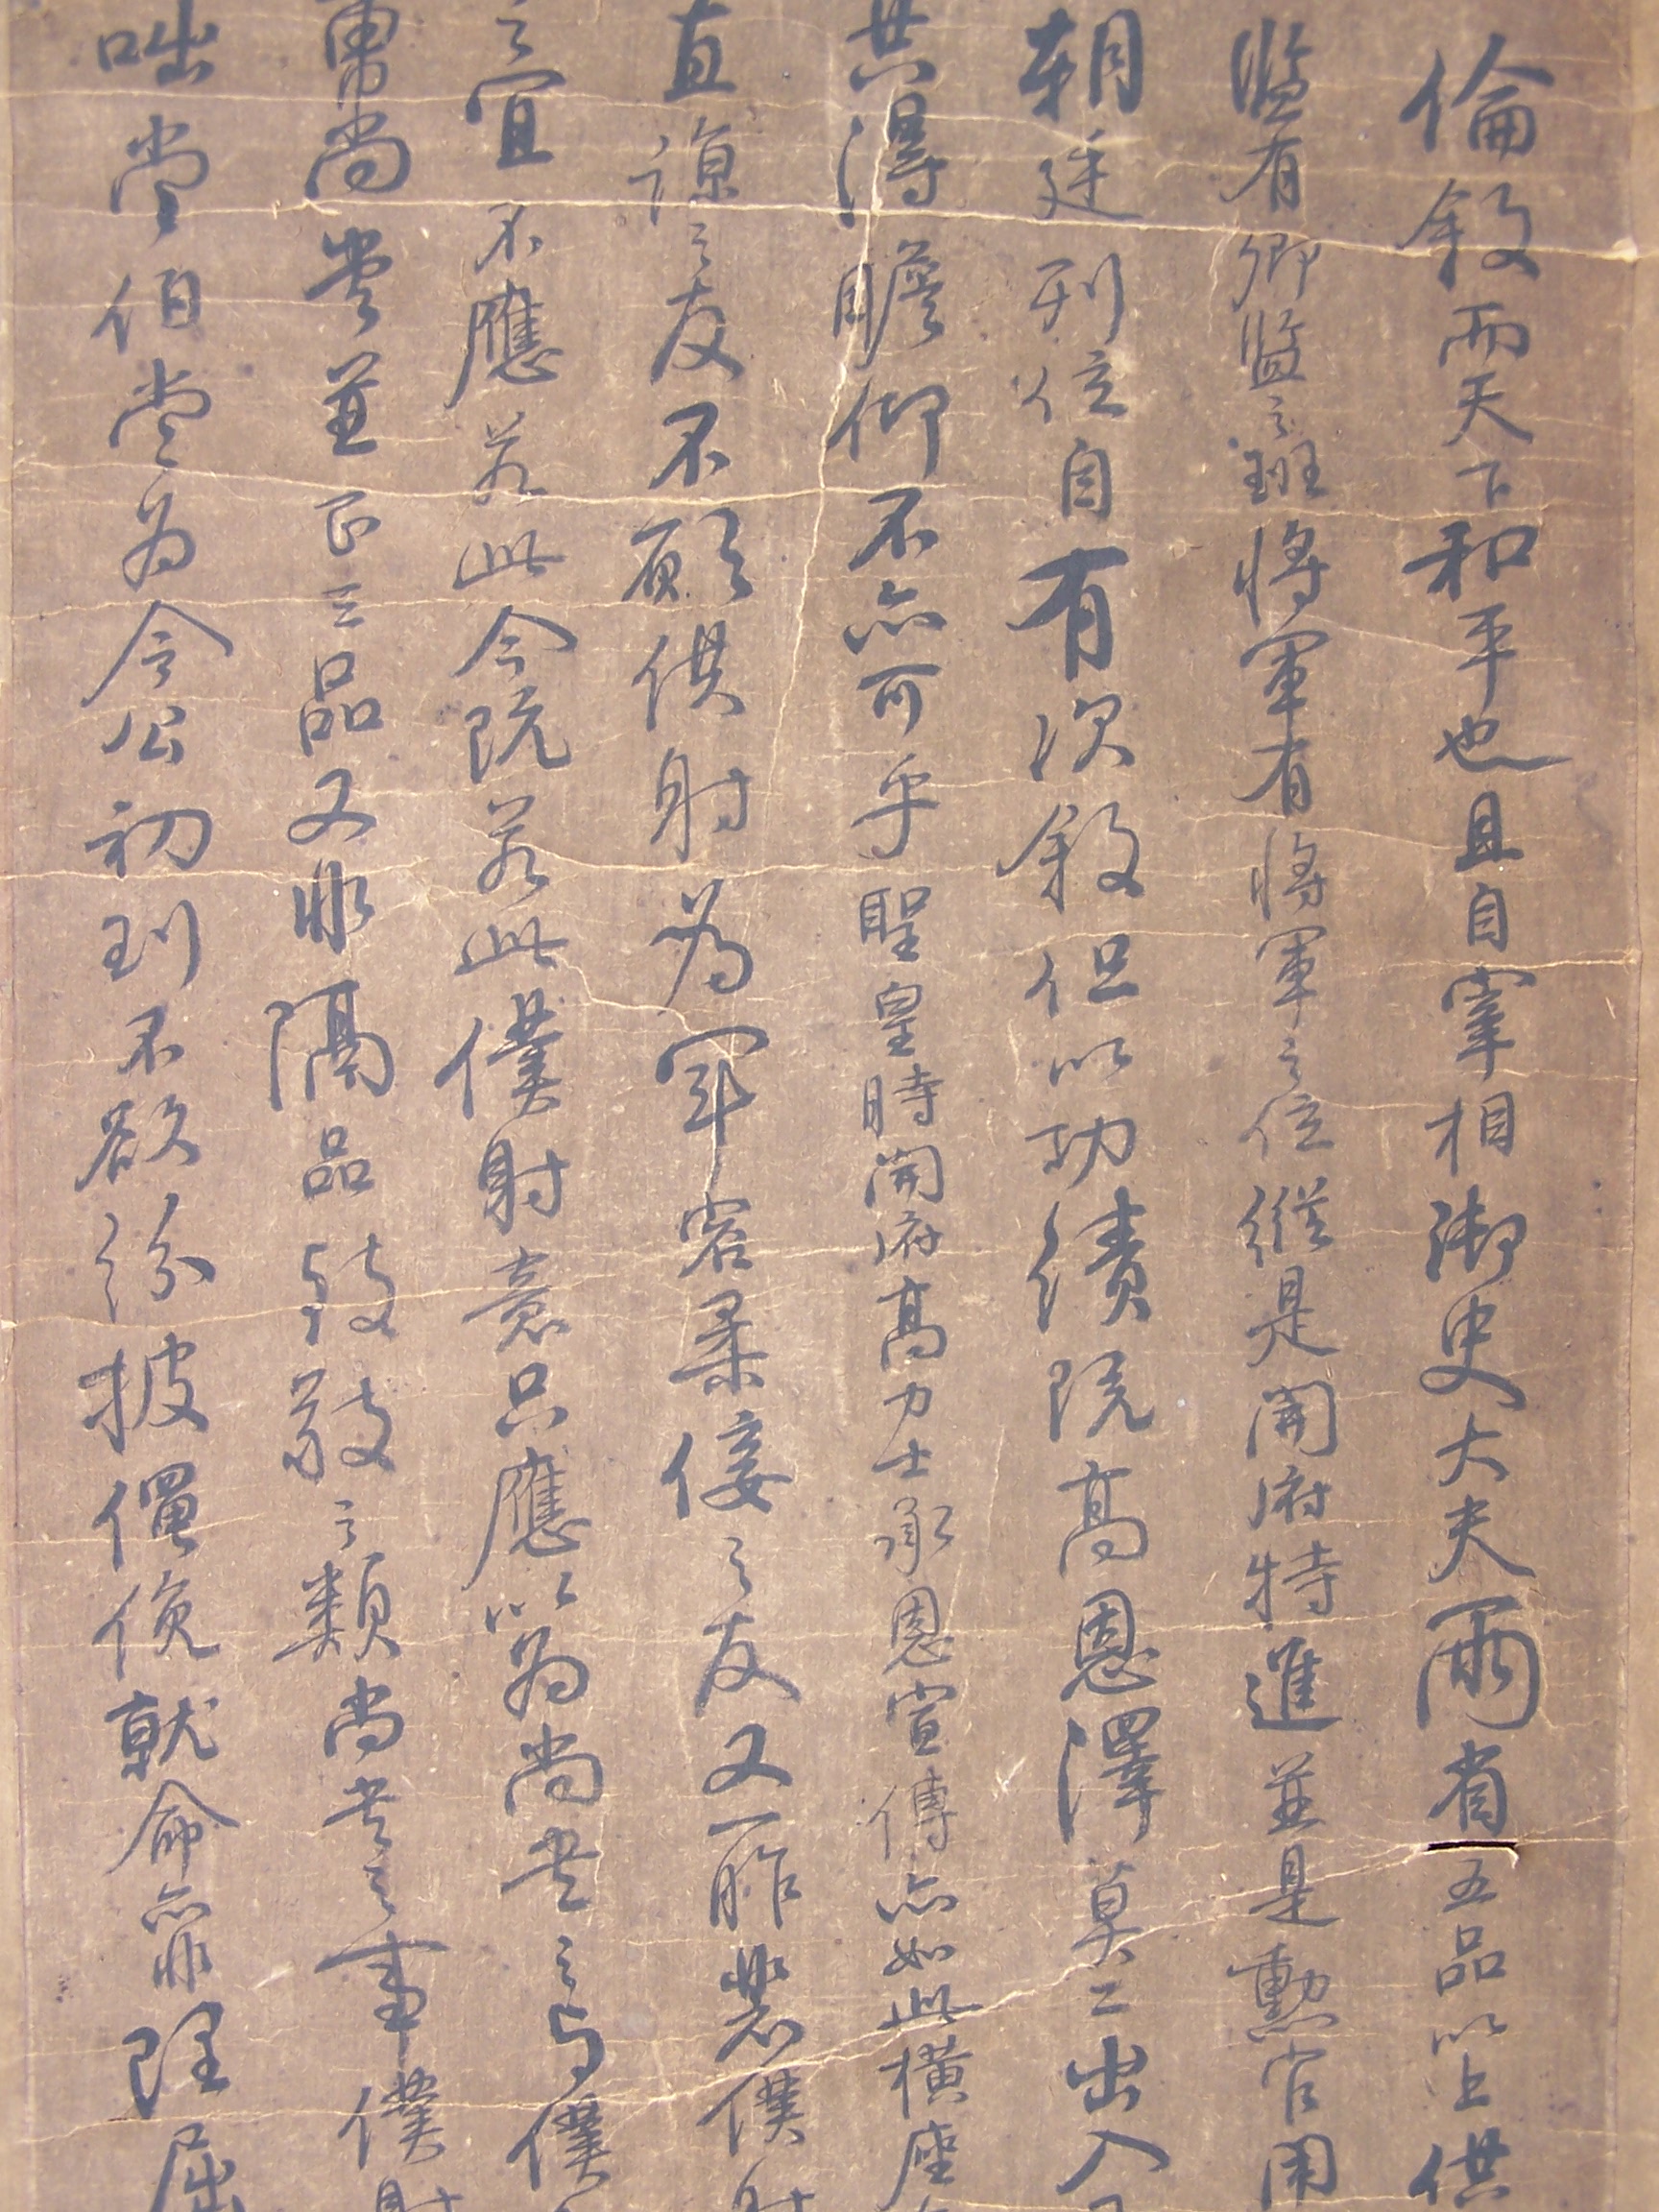 倫叙而天下和平也且自宰相御史大夫兩省五品以上供
監有卿監之班將軍有將軍之位縱是開府特進並是勳官用
朝廷列位自有次叙但以功績既高恩澤莫二出入
共得瞻仰不亦可乎聖皇時開府高力士承恩宣傳亦如此橫座
直諒之友不願僕射為軍容柔佞之友又一昨裴僕射
之宜不應若此今既若此僕射意只應以為尚書之与僕
曹尚書並正三品又非隔品致敬之類尚書之事僕射
咄當伯當為令公初到不欲紛披僶俛就命亦非理屈